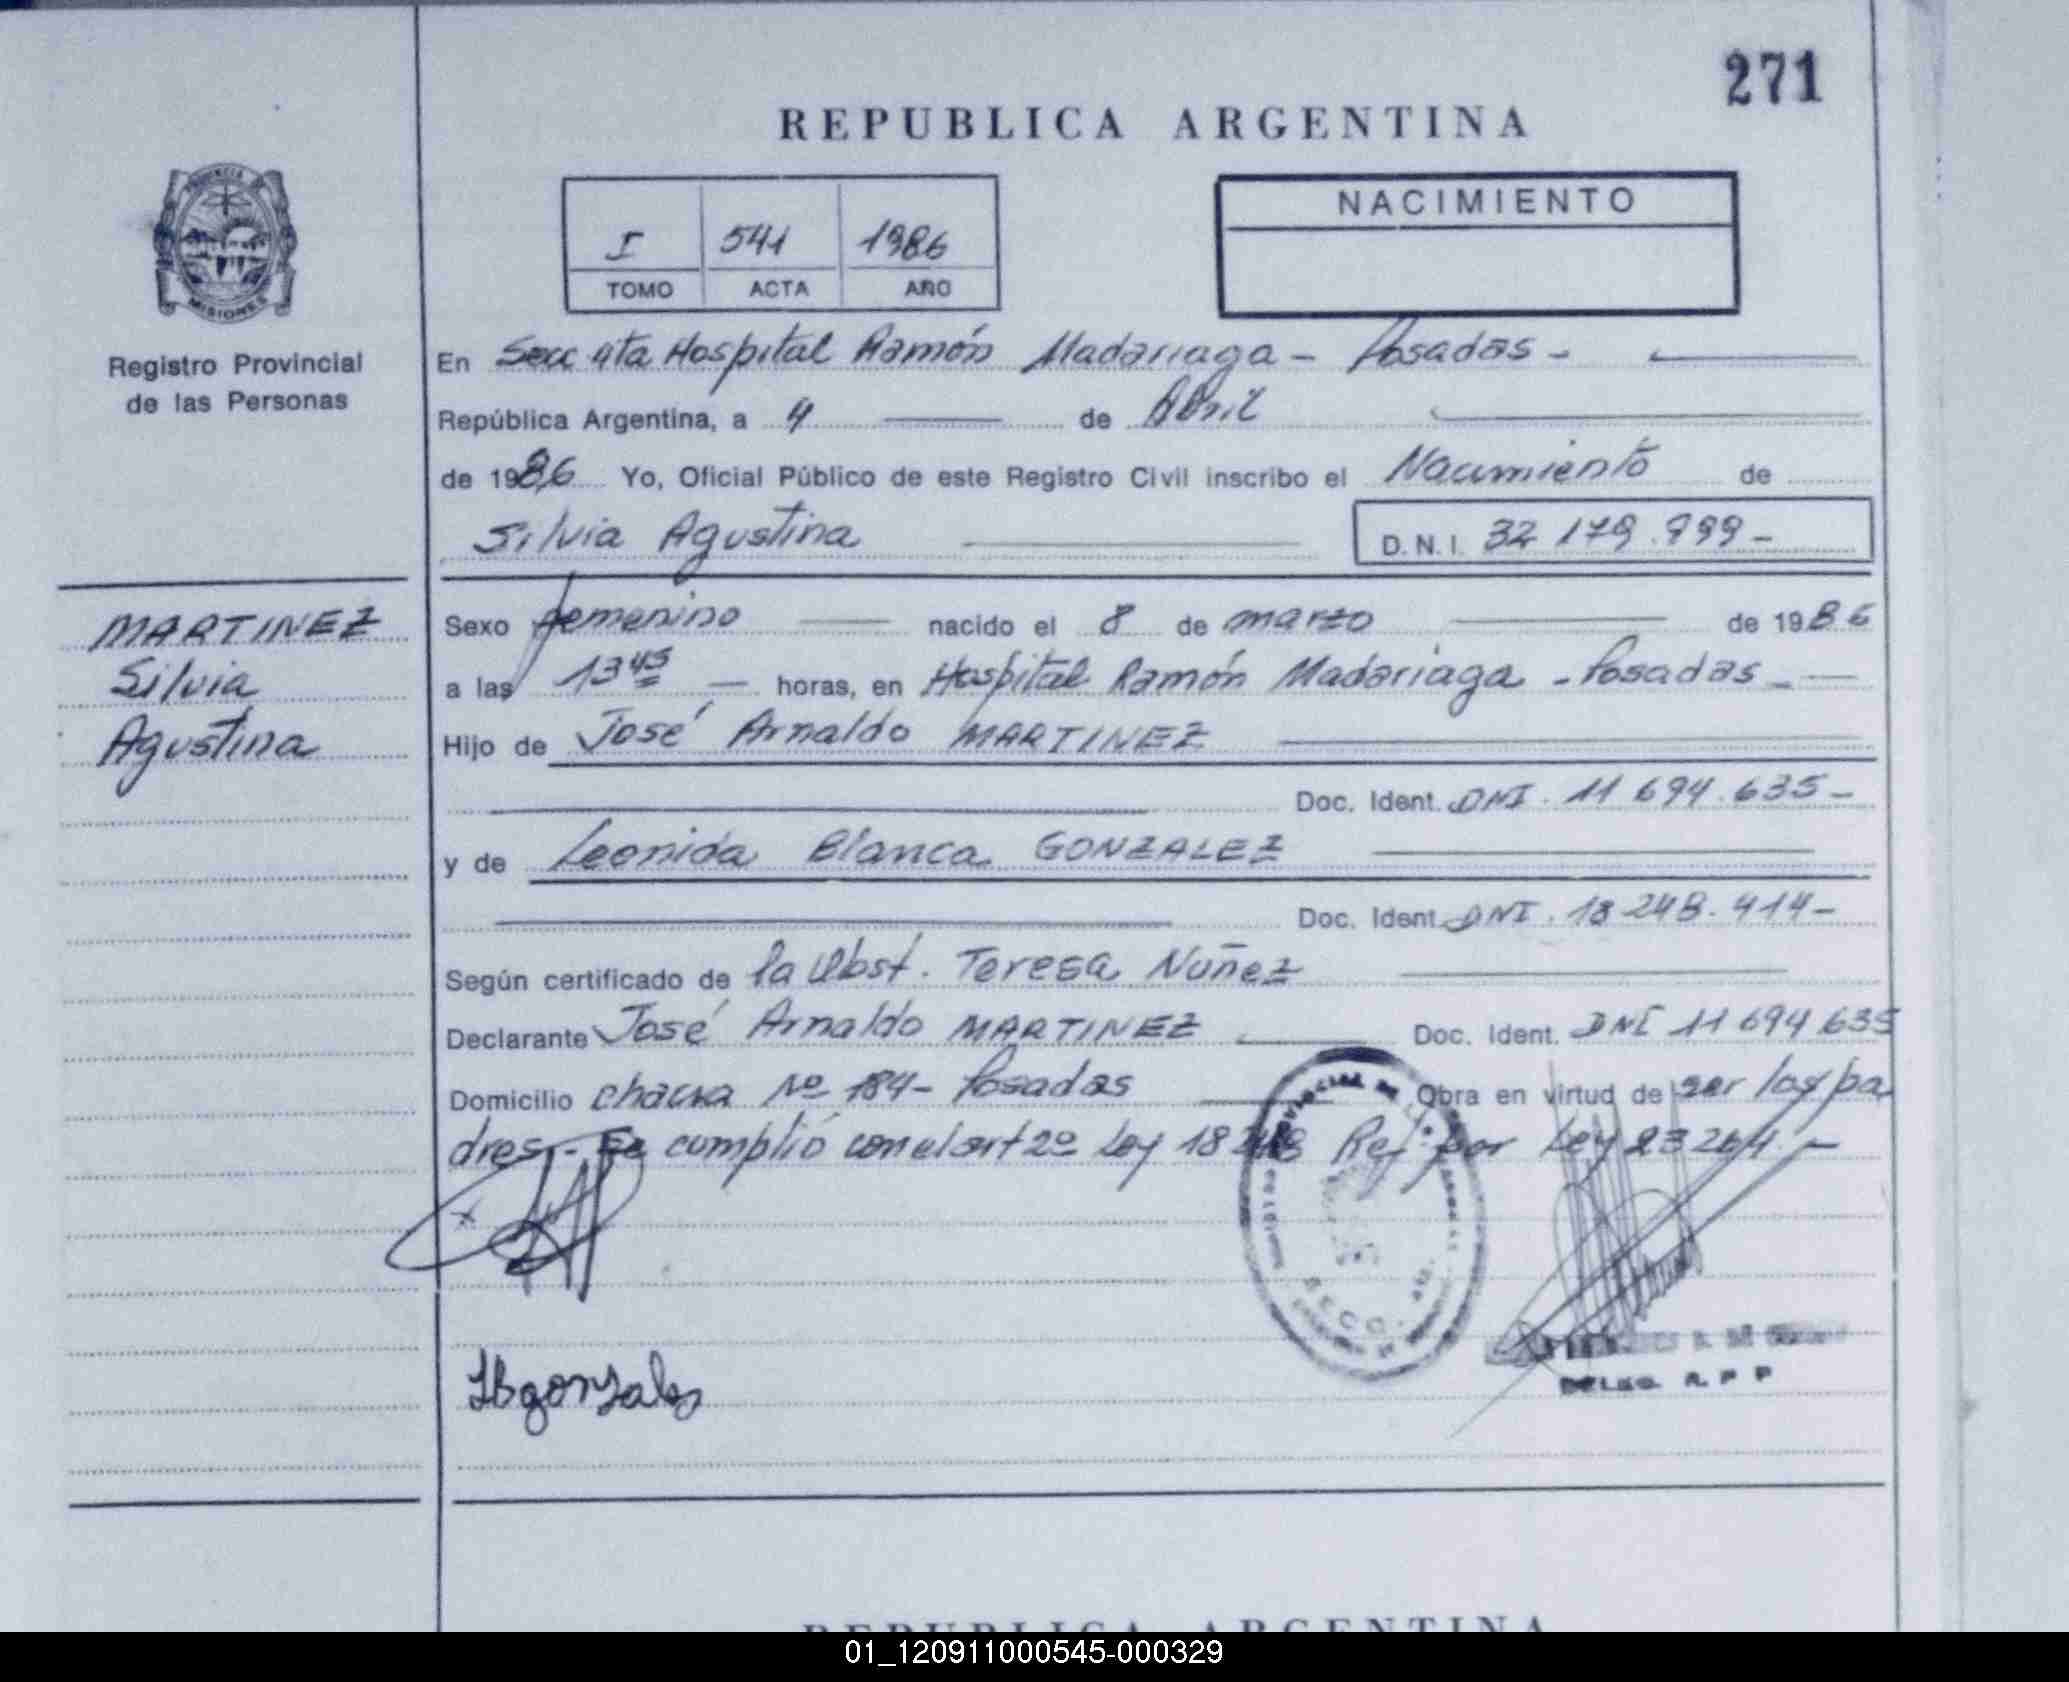 271
REPUBLICA ARGENTINA
PROVINCIA DE
MISIONES
Registro Provincial
de las Personas
NACIMIENTO
I 541 1986
TOMO ACTA AÑO
En Secc 4ta Hospital Ramón Madariaga - Posadas -
República Argentina, a 4 de Abril
de 1986 Yo, Oficial Público de este Registro Civil inscribo el Nacimiento de
Silvia Agustina D.N.I. 32 179.999 -
MARTINEZ
Silvia
Agustina
Sexo femenino nacido el 8 de marzo de 1986
a las 13 45 horas, en Hospital Ramón Madariaga - Posadas -
Hijo de José Arnaldo MARTINEZ
Doc. Ident. DNI. 11 694.635 -
y de Leonida Blanca GONZALEZ
Doc. Ident. DNI. 18 248.414 -
Según certificado de la Obst. Teresa Nuñez
Declarante José Arnaldo MARTINEZ Doc. Ident. DNI 11 694 635
Domicilio chacra Nº 184 - Posadas Obra en virtud de ser los pa
dres.- Se cumplió con el art 2º Ley 18 248 Ref por Ley 23264.-
LBgonzalez
DELEG. R. P. P
REPUBLICA ARGENTINA
01_120911000545-000329